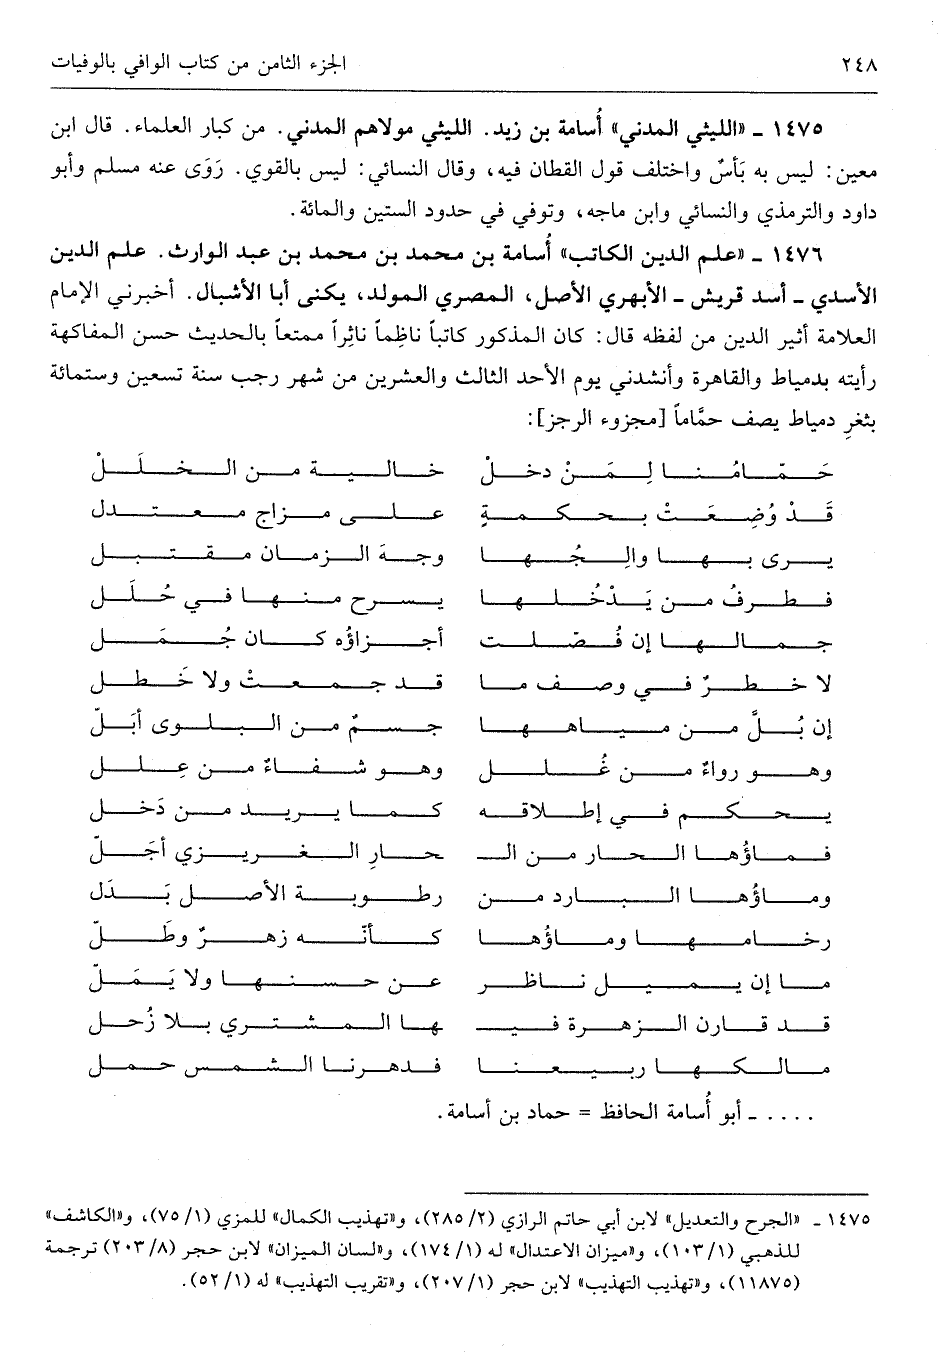 ٢٤٨ الجزء الثامن من كتاب الوافي بالوفيات
١٤٧٥ ـ «الليثي المدني» أُسامة بن زيد. الليثي مولاهم المدني. من كبار العلماء. قال ابن
معين: ليس به بَأسٌ واختلف قول القطان فيه، وقال النسائي: ليس بالقوي. رَوَى عنه مسلم وأبو
داود والترمذي والنسائي وابن ماجه، وتوفي في حدود الستين والمائة.
١٤٧٦ ـ «علم الدين الكاتب» أُسامة بن محمد بن محمد بن عبد الوارث. علم الدين
الأسدي ـ أسد قريش ـ الأبهري الأصل، المصري المولد، يكنى أبا الأشبال. أخبرني الإمام
العلامة أثير الدين من لفظه قال: كان المذكور كاتباً ناظِماً ناثِراً ممتعاً بالحديث حسن المفاكهة
رأيته بدمياط والقاهرة وأنشدني يوم الأحد الثالث والعشرين من شهر رجب سنة تسعين وستمائة
بثغرِ دمياط يصف حمَّاماً [مجزوء الرجز]:
حَمّامُنا لِمَنْ دخلْ خالية من الخلَلْ
قَدْ وُضِعَتْ بحكمةٍ على مزاج معتدل
يرى بها والِجُها وجهَ الزمان مقتبل
فطرفُ من يَدْخُلها يسرح منها في حُلَل
جمالها إن فُصّلت أجزاؤه كان جُمَل
لا خطرٌ في وصف ما قد جمعتْ ولا خَطل
إن بُلَّ من مياهها جسمٌ من البلوى أبَلّ
وهو رواءٌ من غُلل وهو شفاءٌ من عِلل
يحكم في إطلاقه كما يريد من دَخل
فماؤُها الحار من الـ ـحارِ الغريزي أجَلّ
وماؤُها البارد من رطوبة الأصل بَدَل
رخامها وماؤُها كأنّه زهرٌ وطَلّ
ما إن يميل ناظر عن حسنها ولا يَمَلّ
قد قارن الزهرة فيـ ـها المشتري بلا زُحل
مالكها ربيعنا فدهرنا الشمس حمل
.... ـ أبو أُسامة الحافظ = حماد بن أسامة.
١٤٧٥ ـ «الجرح والتعديل» لابن أبي حاتم الرازي (٢/ ٢٨٥)، و«تهذيب الكمال» للمزي (١/ ٧٥)، و«الكاشف»
للذهبي (١/ ١٠٣)، و«ميزان الاعتدال» له (١/ ١٧٤)، و«لسان الميزان» لابن حجر (٨/ ٢٠٣) ترجمة
(١١٨٧٥)، و«تهذيب التهذيب» لابن حجر (١/ ٢٠٧)، و«تقريب التهذيب» له (١/ ٥٢).